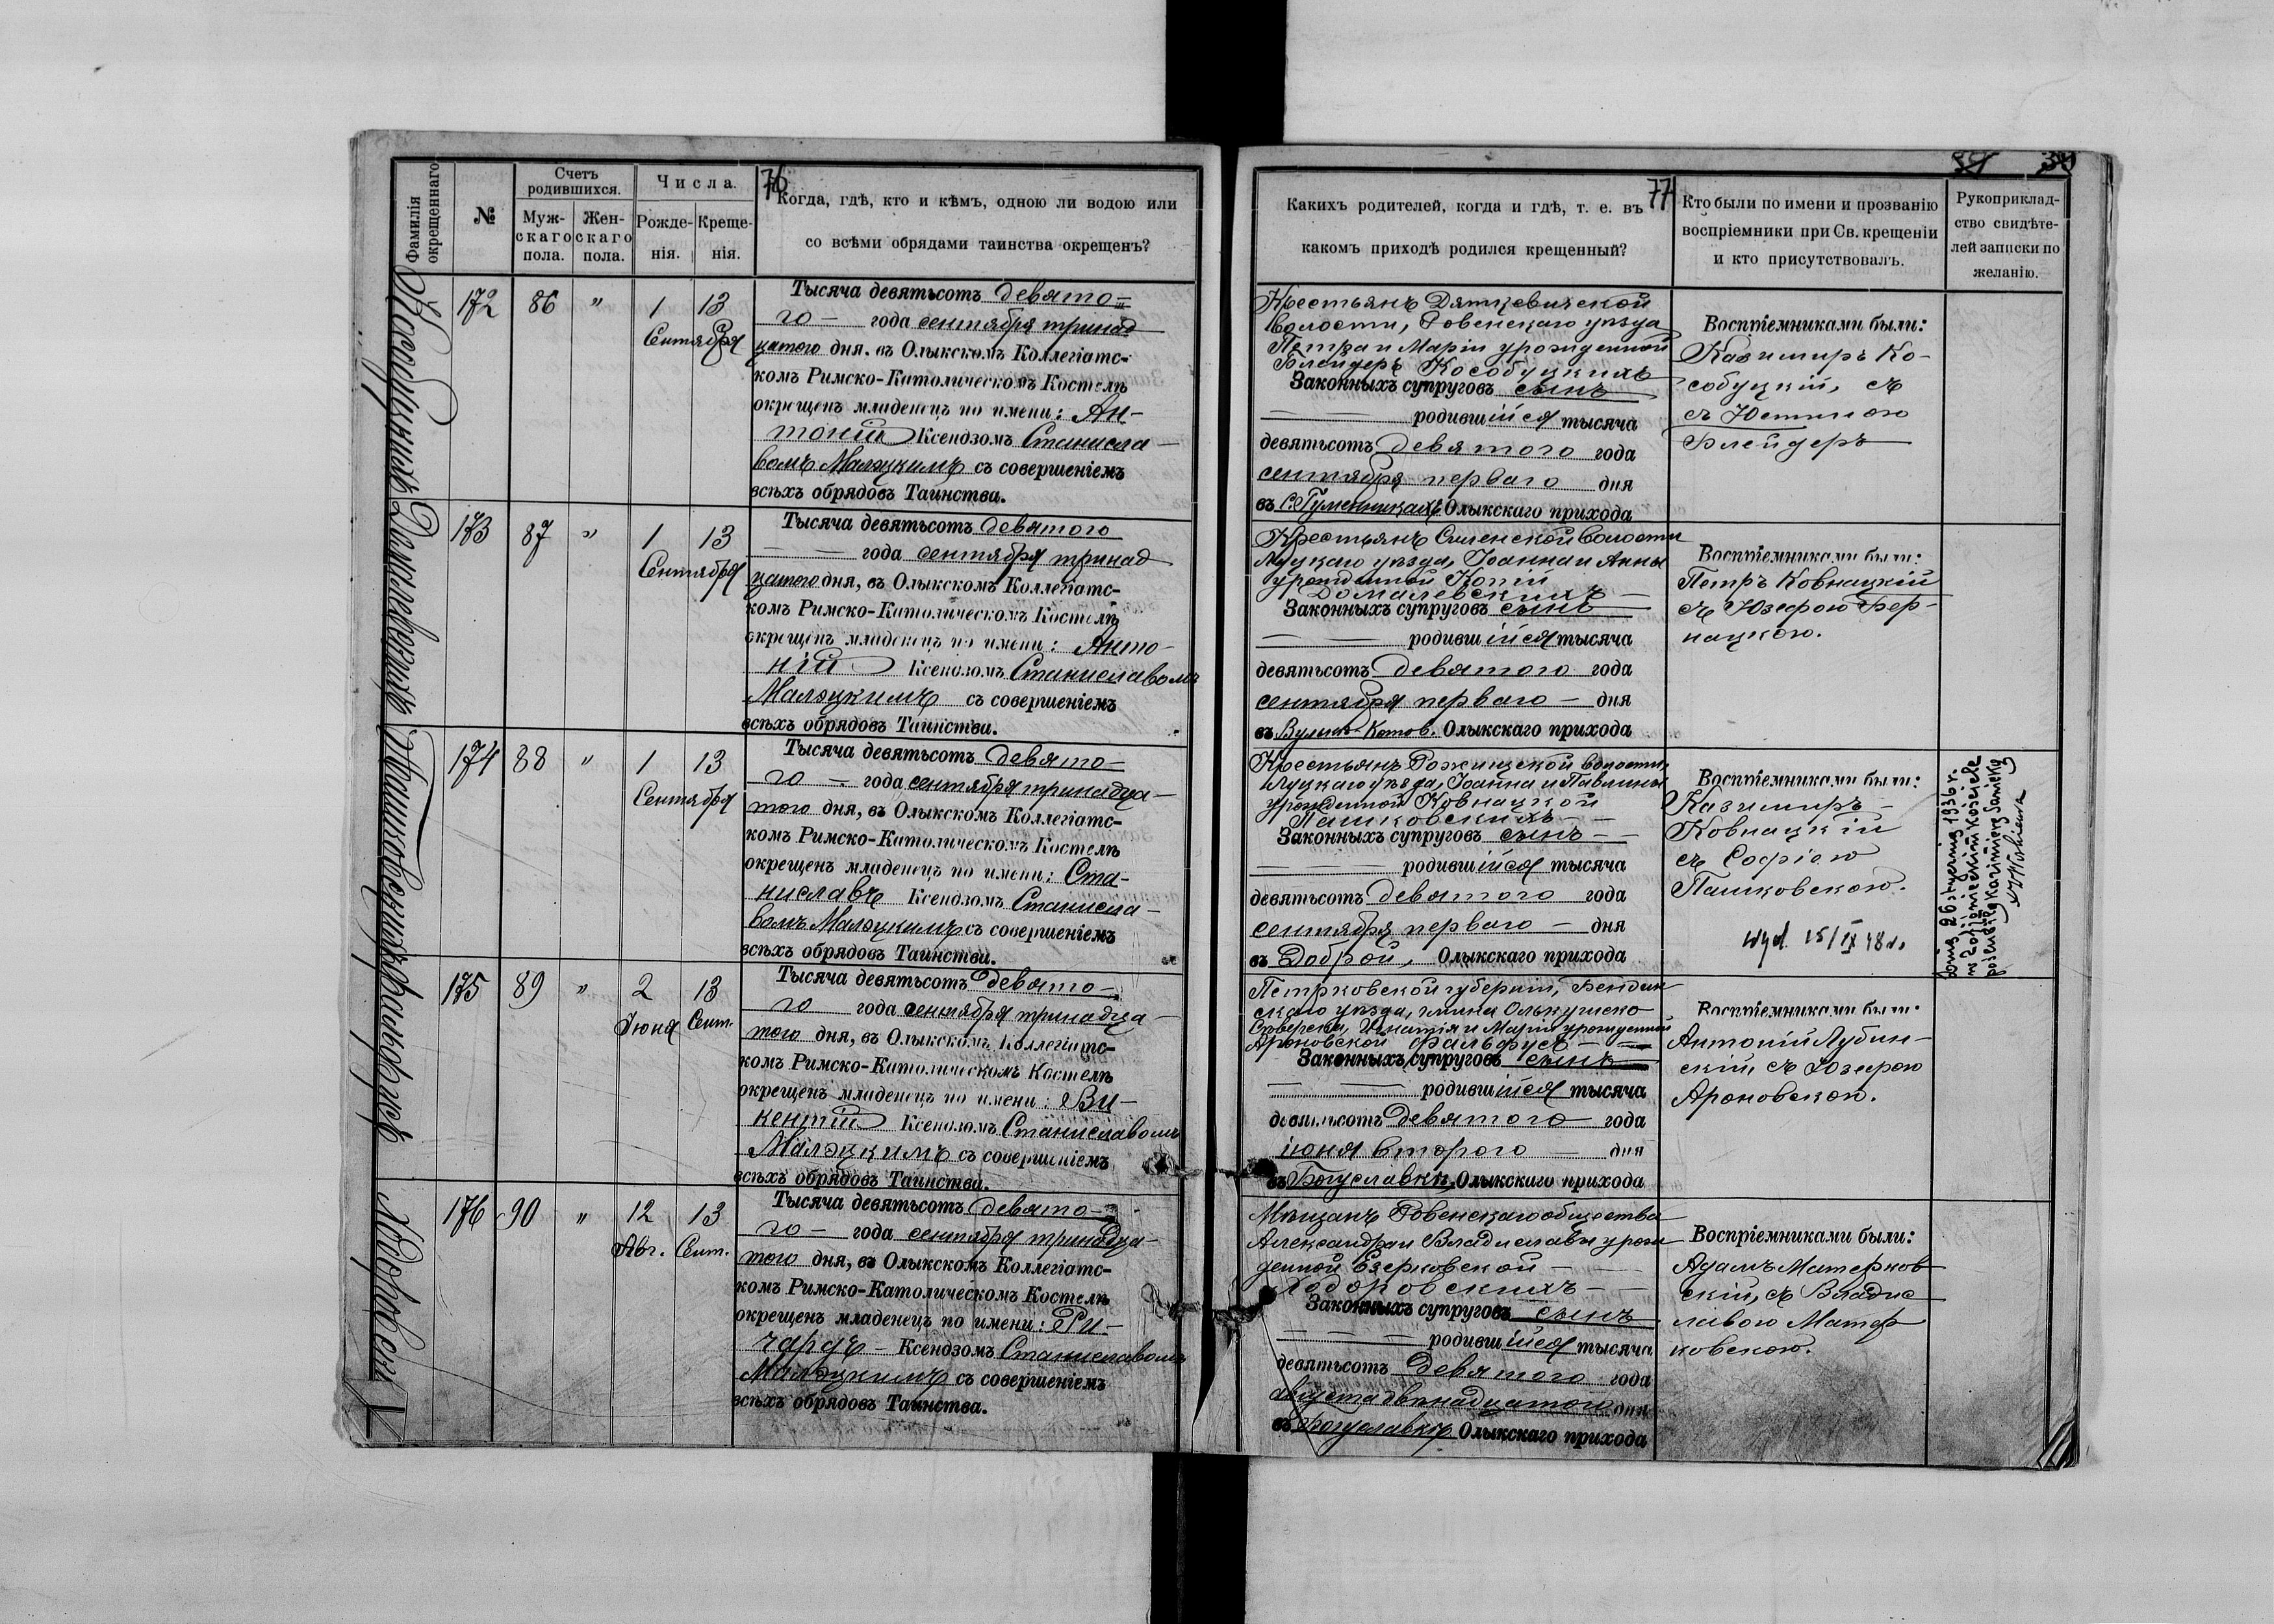 76
Фамилія окрещеннаго
№
Счетъ родившихся.
Муж-скаго пола.
Жен-скаго пола.
Числа.
Рожде-нія.
Креще-нія.
Когда, гдѣ, кто и кѣмъ, одною ли водою или
со всѣми обрядами таинства окрещенъ?
172 86 " 1 13
Сентября
Тысяча девятьсотъ девято-
го — года сентября тринад
цатого дня, въ Олыкскомъ Коллегіатс-
комъ Римско-Католическомъ Костелѣ
окрещенъ младенецъ по имени: Ан-
тоній Ксендзомъ Станисла-
вомъ Малэцкимъ съ совершеніемъ
всѣхъ обрядовъ Таинства.
173 87 " 1 13
Сентября
Тысяча девятьсотъ девятого
— года сентября тринад
цатого дня, въ Олыкскомъ Коллегіатс-
комъ Римско-Католическомъ Костелѣ
окрещенъ младенецъ по имени: Анто-
ній Ксендзомъ Станиславомъ
Малэцкимъ съ совершеніемъ
всѣхъ обрядовъ Таинства.
Пашковскихъ
174 88 " 1 13
Сентября
Тысяча девятьсотъ девято-
го — года сентября тринадца-
того дня, въ Олыкскомъ Коллегіатс-
комъ Римско-Католическомъ Костелѣ
окрещенъ младенецъ по имени: Ста-
ниславъ Ксендзомъ Станисла-
вомъ Малэцкимъ съ совершеніемъ
всѣхъ обрядовъ Таинства.
175 89 " 2 13
Іюня Сент.
Тысяча девятьсотъ девято-
го года сентября тринадца-
того дня, въ Олыкскомъ Коллегіатс-
комъ Римско-Католическомъ Костелѣ
окрещенъ младенецъ по имени: Ви-
кентій Ксендзомъ Станиславомъ
Малэцкимъ съ совершеніемъ
всѣхъ обрядовъ Таинства.
176 90 " 12 13
Авг. Сент.
Тысяча девятьсотъ девято-
го — года сентября тринадца-
того дня, въ Олыкскомъ Коллегіатс-
комъ Римско-Католическомъ Костелѣ
окрещенъ младенецъ по имени: Ри-
чардъ — Ксендзомъ Станиславомъ
Малэцкимъ съ совершеніемъ
всѣхъ обрядовъ Таинства.
77
Какихъ родителей, когда и гдѣ, т. е. въ
какомъ приходѣ родился крещенный?
Кто были по имени и прозванію
воспріемники при Св. крещеніи
и кто присутствовалъ.
Рукоприклад-
ство свидѣте-
лей записки по
желанію.
Крестьянъ Дятковичской
волости, Ровенскаго уѣзда
Петра и Маріи урожденной
Блейдеръ Кособуцкихъ
Законныхъ супруговъ сынъ
родившійся тысяча
девятьсотъ девятого года
сентября перваго дня
въ с. Гуменникахъ Олыкскаго прихода
Воспріемниками были:
Казимиръ Ко-
собуцкій, съ
съ Юстиною
Блейдеръ
Крестьянъ Силенской волости
Луцкаго уѣзда, Іоанна и Анны
урожденной Копій
Домалевскихъ —
Законныхъ супруговъ сынъ
родившійся тысяча
девятьсотъ девятого года
сентября перваго — дня
въ Котов. Олыкскаго прихода
Воспріемниками были:
Петръ Ковнацкій
съ Юзефою Бер-
нацкою.
Крестьянъ Рожищской волости,
Луцкаго уѣзда, Іоанна и Павлины
урожденной Ковнацкой
Пашковскихъ
Законныхъ супруговъ сынъ
родившійся тысяча
девятьсотъ девятого года
сентября перваго — дня
въ Доброй, Олыкскаго прихода
Воспріемниками были:
Казимиръ
Ковнацкій
съ Софіею
Пашковскою.
wyd. 15/IX 48 r.
Dnia 26 stycznia 1936 r.
w kościele
Петрковской губерніи, Бендин
скаго уѣзда, гмина Олькушско
Сѣверска, Игнатія и Маріи урожденной
Ароновской Фальфусъ
Законныхъ супруговъ сынъ
родившійся тысяча
девятьсотъ девятого года
іюня второго — дня
въ Богуславкѣ, Олыкскаго прихода
Воспріемниками были:
Антоній Лубин-
скій съ Юзефою
Ароновскою.
Мѣщанъ Ровенскаго общества
Александра и Владиславы урож
денной Езерковской
Ходоровскихъ
Законныхъ супруговъ сынъ
родившійся тысяча
девятьсотъ девятого года
августа двѣнадцатого дня
въ Богуславкѣ Олыкскаго прихода
Воспріемниками были:
Адамъ Матерков
скій, съ Владис
лавою Матер
ковскою.